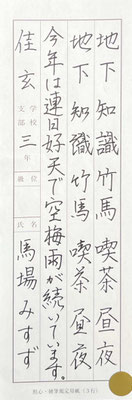 地下知識竹馬喫茶昼夜
地下知識竹馬喫茶昼夜
今年は連日好天で空梅雨が続いています。
佳玄 学校 支部 三 年 氏名 馬場みすず